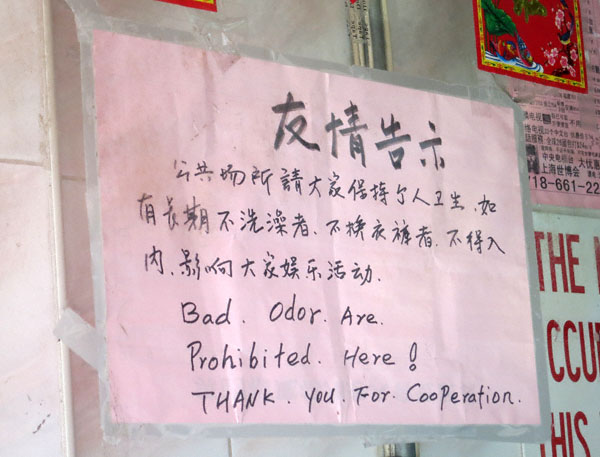 友情告示
公共场所請大家保持个人卫生.如
有長期不洗澡者.不换衣裤者.不得入
内.影响大家娱乐活动.
Bad. Odor. Are.
Prohibited. Here!
THANK. YOU. For. Cooperation.
中央电视台
上海世博会
大优惠
718-661-22
THE
CCU
THIS